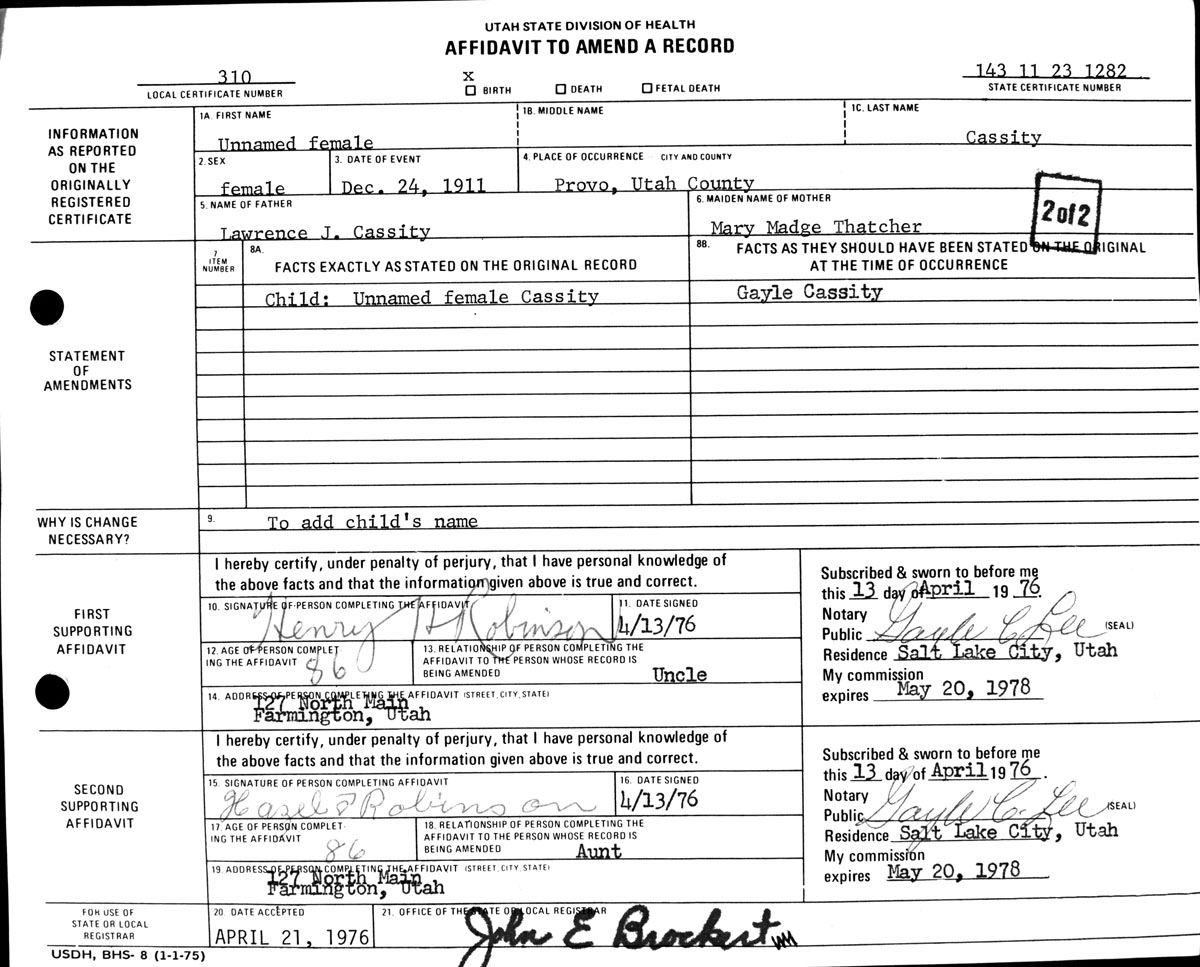 UTAH STATE DIVISION OF HEALTH
AFFIDAVIT TO AMEND A RECORD
310
LOCAL CERTIFICATE NUMBER
X
BIRTH DEATH FETAL DEATH
143 11 23 1282
STATE CERTIFICATE NUMBER
INFORMATION
AS REPORTED
ON THE
ORIGINALLY
REGISTERED
CERTIFICATE
1A. FIRST NAME 1B. MIDDLE NAME 1C. LAST NAME
Unnamed female Cassity
2. SEX 3. DATE OF EVENT 4. PLACE OF OCCURRENCE CITY AND COUNTY
female Dec. 24, 1911 Provo, Utah County
5. NAME OF FATHER 6. MAIDEN NAME OF MOTHER
Lawrence J. Cassity Mary Madge Thatcher
2 of 2
STATEMENT
OF
AMENDMENTS
7
ITEM
NUMBER
8A.
FACTS EXACTLY AS STATED ON THE ORIGINAL RECORD
8B. FACTS AS THEY SHOULD HAVE BEEN STATED ON THE ORIGINAL
AT THE TIME OF OCCURRENCE
Child: Unnamed female Cassity Gayle Cassity
WHY IS CHANGE
NECESSARY?
9. To add child's name
FIRST
SUPPORTING
AFFIDAVIT
I hereby certify, under penalty of perjury, that I have personal knowledge of
the above facts and that the information given above is true and correct.
10. SIGNATURE OF PERSON COMPLETING THE AFFIDAVIT 11. DATE SIGNED
Henry H Robinson 4/13/76
12. AGE OF PERSON COMPLET-
ING THE AFFIDAVIT 86
13. RELATIONSHIP OF PERSON COMPLETING THE
AFFIDAVIT TO THE PERSON WHOSE RECORD IS
BEING AMENDED Uncle
14. ADDRESS OF PERSON COMPLETING THE AFFIDAVIT (STREET, CITY, STATE)
127 North Main
Farmington, Utah
Subscribed & sworn to before me
this 13 day of April 19 76.
Notary
Public Gayle C. Lee (SEAL)
Residence Salt Lake City, Utah
My commission
expires May 20, 1978
SECOND
SUPPORTING
AFFIDAVIT
I hereby certify, under penalty of perjury, that I have personal knowledge of
the above facts and that the information given above is true and correct.
15. SIGNATURE OF PERSON COMPLETING AFFIDAVIT 16. DATE SIGNED
Hazel Robinson 4/13/76
17. AGE OF PERSON COMPLET-
ING THE AFFIDAVIT 86
18. RELATIONSHIP OF PERSON COMPLETING THE
AFFIDAVIT TO THE PERSON WHOSE RECORD IS
BEING AMENDED Aunt
19. ADDRESS OF PERSON COMPLETING THE AFFIDAVIT (STREET, CITY, STATE)
127 North Main
Farmington, Utah
Subscribed & sworn to before me
this 13 day of April 19 76.
Notary
Public Gayle C. Lee (SEAL)
Residence Salt Lake City, Utah
My commission
expires May 20, 1978
FOR USE OF
STATE OR LOCAL
REGISTRAR
20. DATE ACCEPTED 21. OFFICE OF THE STATE OR LOCAL REGISTRAR
APRIL 21, 1976 John E Brockert
USDH, BHS- 8 (1-1-75)